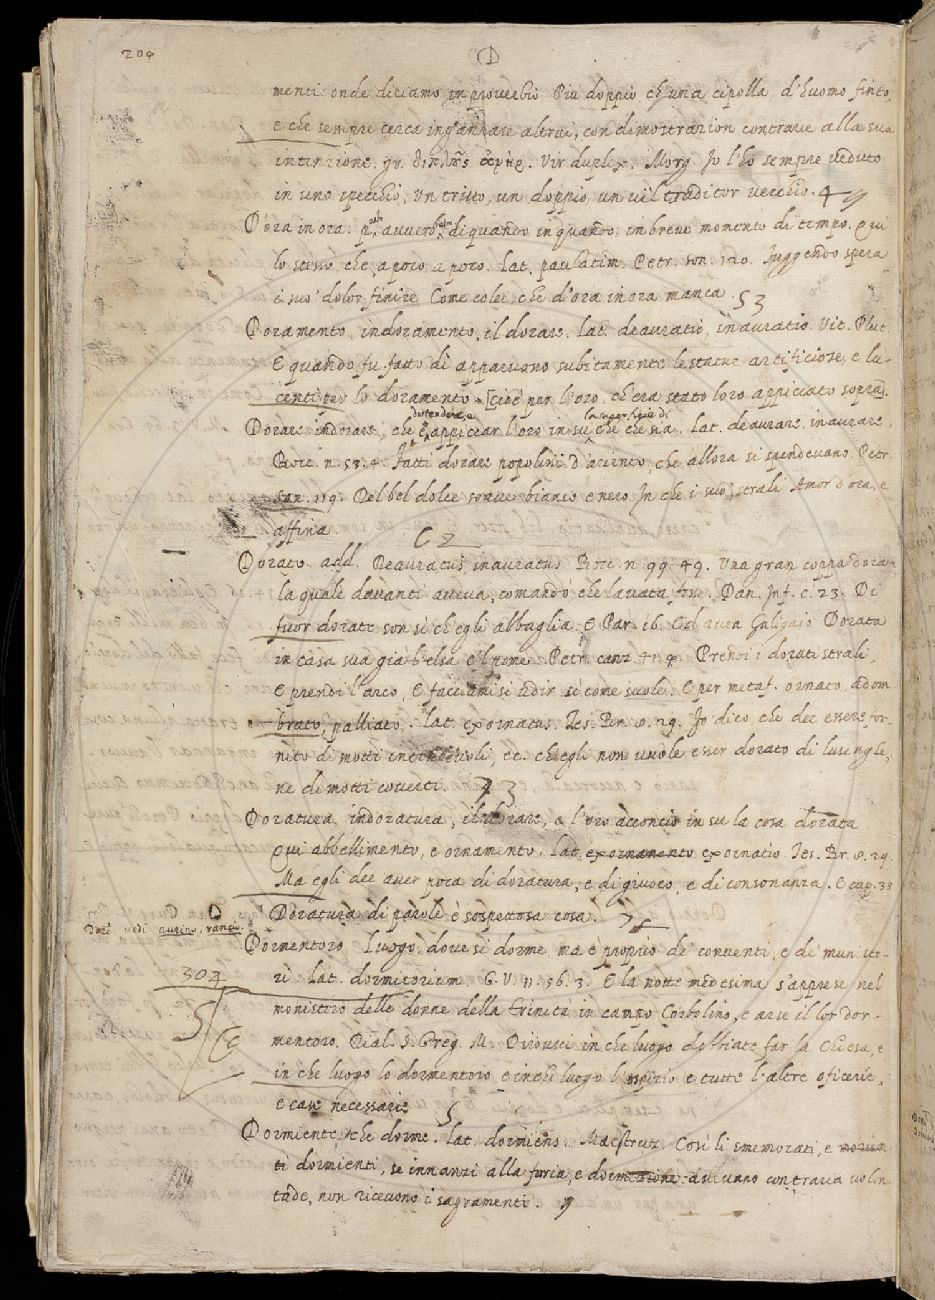 209
D
menti onde diciamo in proverbio Piu doppio ch'una cipolla d'huomo finto,
e che sempre cerca ingannare altrui, con dimostrazion contrarie alla sua
intenzione. gr. Vir duplex. Morg. Io l'ho sempre veduto
in uno specchio, un tristo, un doppio un vil traditor vecchio.
D'ora in ora. di quando in quando. in breve momento di tempo. Qui
lo stesso che, a poco a poco. Lat. paulatim. Petr. son. 120. Fuggendo spera
i suo' dolor finire Come colei, che d'ora in ora manca. 53
Doramento, indoramento, il dorare. Lat. deauratio, inauratio. Vit. Plut.
E quando fu fatto dì apparvono subitamente le statue artificiose, e lu-
centi per lo doramento [cioè per l'oro, ch'era stato loro appiccato sopra].
distendere, e la superficie di
Dorare indorare, che è appiccar l'oro in su che che sia. Lat. deaurare, inaurare.
Bocc. n. 53. 4. Fatti dorare popolini d'ariento, che allora si spendevano. Petr.
son. 119. Del bel dolce soave bianco e nero In che i suo' strali Amor d'ora, e
affina
62
Dorato. add. Deauratus, inauratus Bocc. n. 99. 49. Una gran coppa dorata
la quale davanti aveva, comandò che lavata fusse. Dan. Inf. c. 23. Di
fuor dorate son sì ch'egli abbaglia. E Par. 16. Ed avea Galigaio Dorata
in casa sua già l'elsa e 'l pome. Petr. canz. Prendi i dorati strali,
E prendi l'arco, E facciamisi udir, sì come suole. E per metaf. ornato, adom
brato, palliato. Lat. exornatus. Tes. Br. 8. 29. Io dico, che dee essere for-
nito di motti intendevoli, ec. ch'egli non vuole esser dorato di lusinghe,
ne di motti coverti. 73
Doratura, indoratura, il dorare, e l'oro acconcio in su la cosa dorata
Qui abbellimento, e ornamento. Lat. exornamento exornatio. Tes. Br. 8. 29.
Ma egli dee aver poca di doratura, e di giuoco, e di consonanza. E cap. 33
Doratura di parole è sospettosa cosa. 76
Dorè vedi aurino, rancio.
Dormentoro. Luogo dove si dorme, ma è propio de' conventi, e di muniste-
ri Lat. dormitorium. G. V. 11. 56. 3. E la notte medesima s'apprese nel
307
monistero delle donne della trinità in campo Corbolino, e arse il lor dor-
mentoro. Dial. S. Greg. M. Dirovvi in che luogo dobbiate far la chiesa, e
in che luogo lo dormentoro e in che luogo l'ospizio e tutte l'altre oficerie,
e case necessarie 5
Dormiente, che dorme. Lat. dormiens. Maestruz. Così li smemorati, e
ti dormienti, se innanzi alla furia, e avevano contraria volon
tade, non ricevono i sagramenti. 9